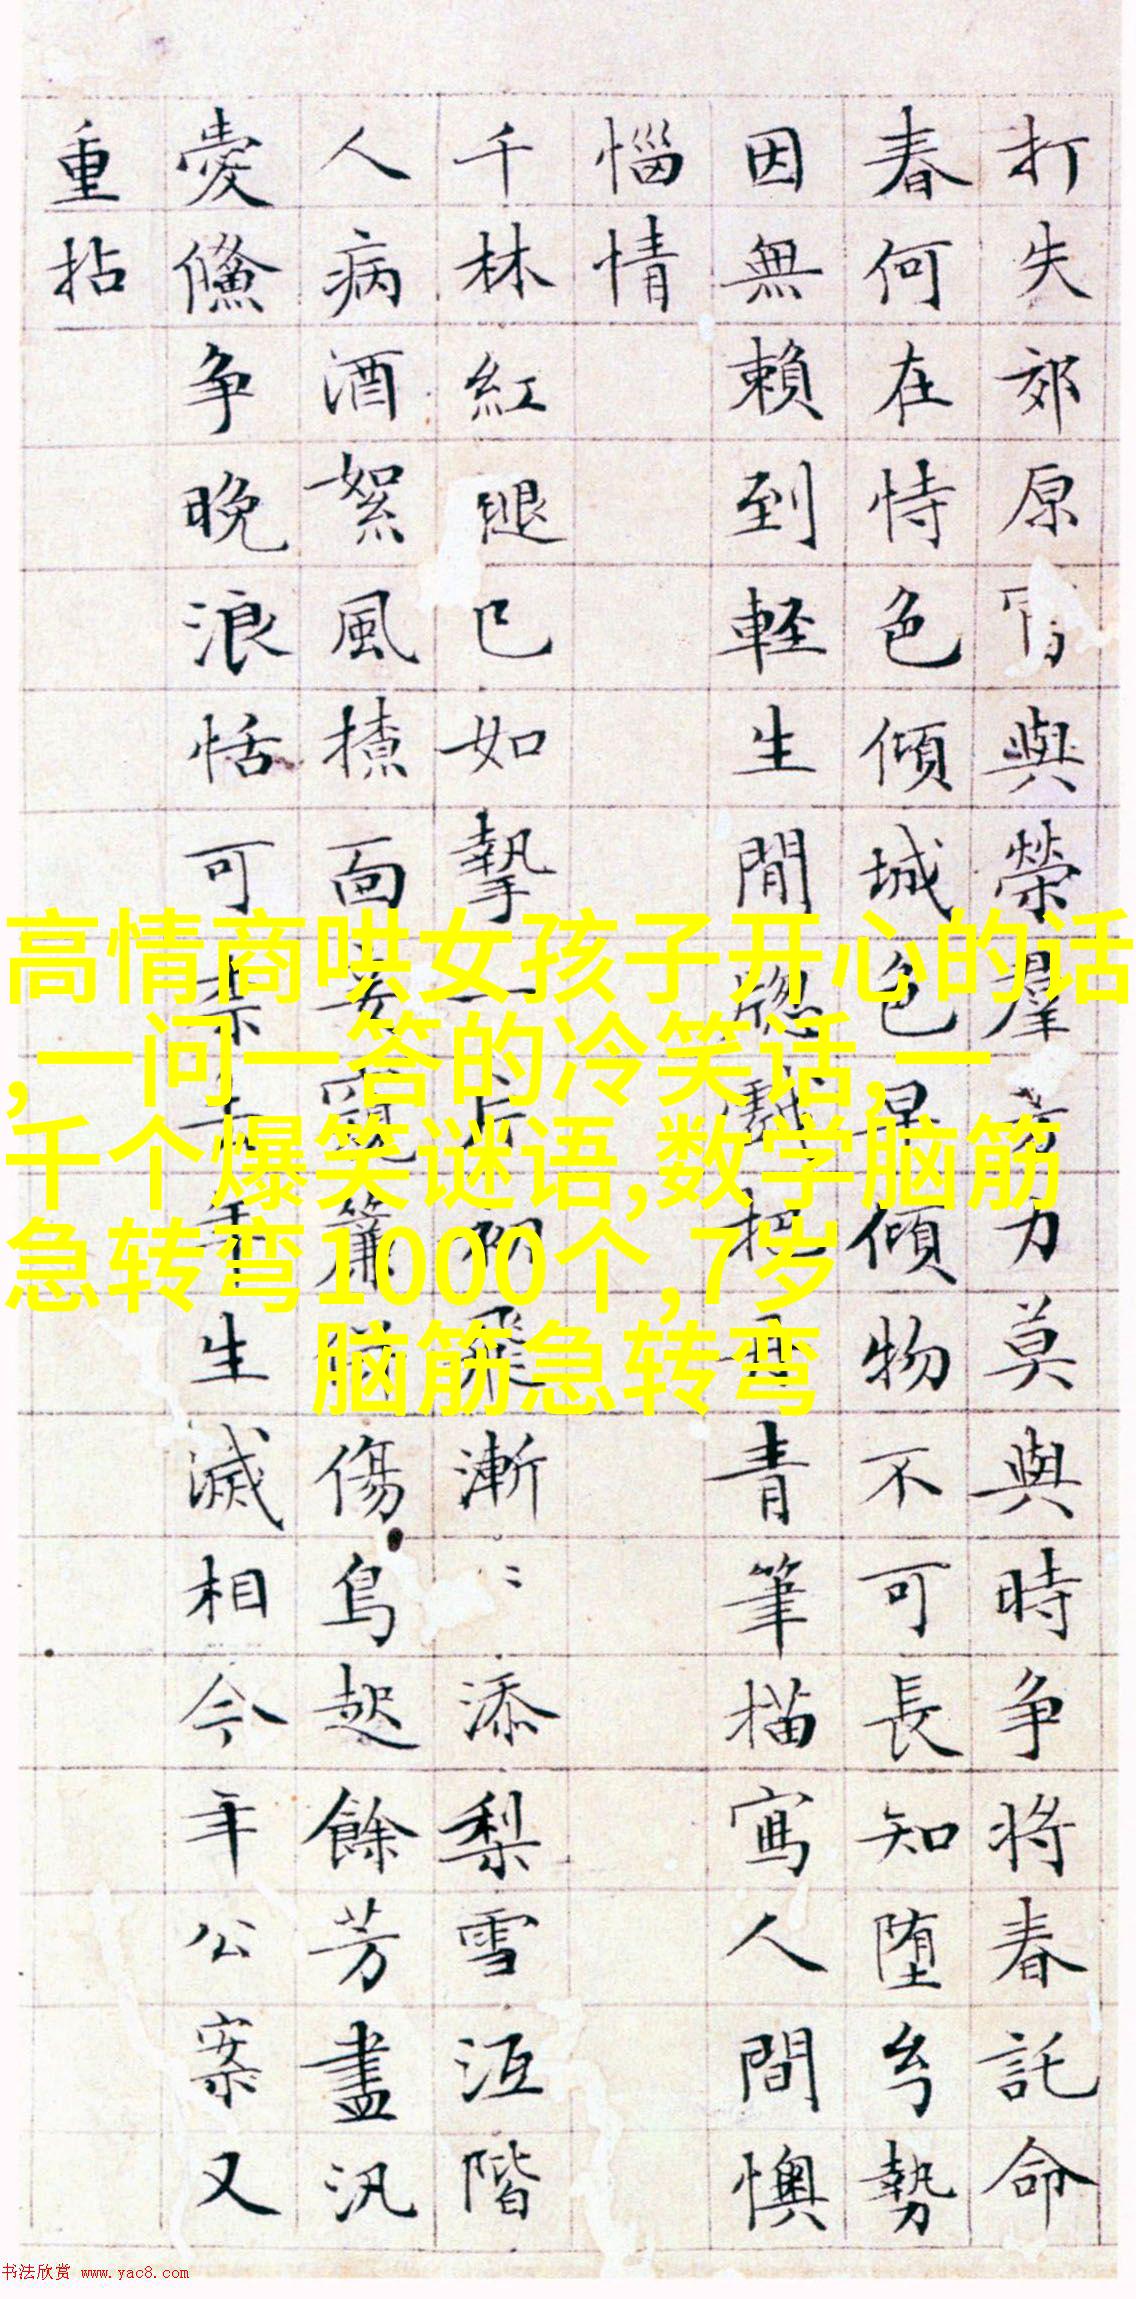 高情商哄女孩子开心的话
,一问一答的冷笑话,一
千个爆笑谜语,数学脑筋
急转弯1000个,7岁
脑筋急转弯
打失郊原 與榮羣芳力莫與時争将春託命
春何在恃色傾城色早傾物不可長知堕勢
因無頼到軽生閒窓戲把丹青筆描寫人間懊
惱情
千林紅腿已如摯一片初飛漸〻添梨雪沍階
人病酒絮風揸面妾窺簾傷鳥起餘芳盡汎
愛儵争晚浪恬可生滅相今年公案又
重拈
书法欣赏 www.yac8.com